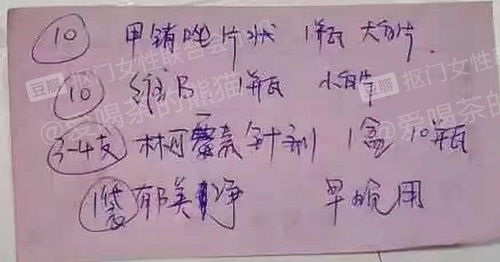 ⑩ 甲硝唑片状 1瓶 大白片.
⑩ 维B 1瓶 小白片
3-4支 林可霉素针剂 1盒 10瓶
1袋 郁美净 早晚用
豆瓣 抠门女性联合会
@爱喝茶的熊猫
豆瓣 抠门女性
@爱喝茶的